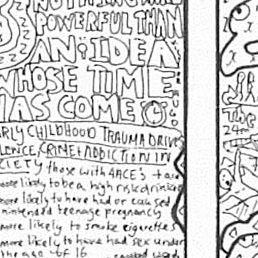 NOTHING MORE
POWERFUL THAN
AN IDEA
WHOSE TIME
HAS COME
EARLY CHILDHOOD TRAUMA DRIVES
VIOLENCE, CRIME + ADDICTION IN
SOCIETY those with 4 ACE's +
more likely to be a high risk drinker
more likely to have had or caused
unintended teenage pregnancy
more likely to smoke cigarettes
more likely to have had sex under
the age of 16
The
24